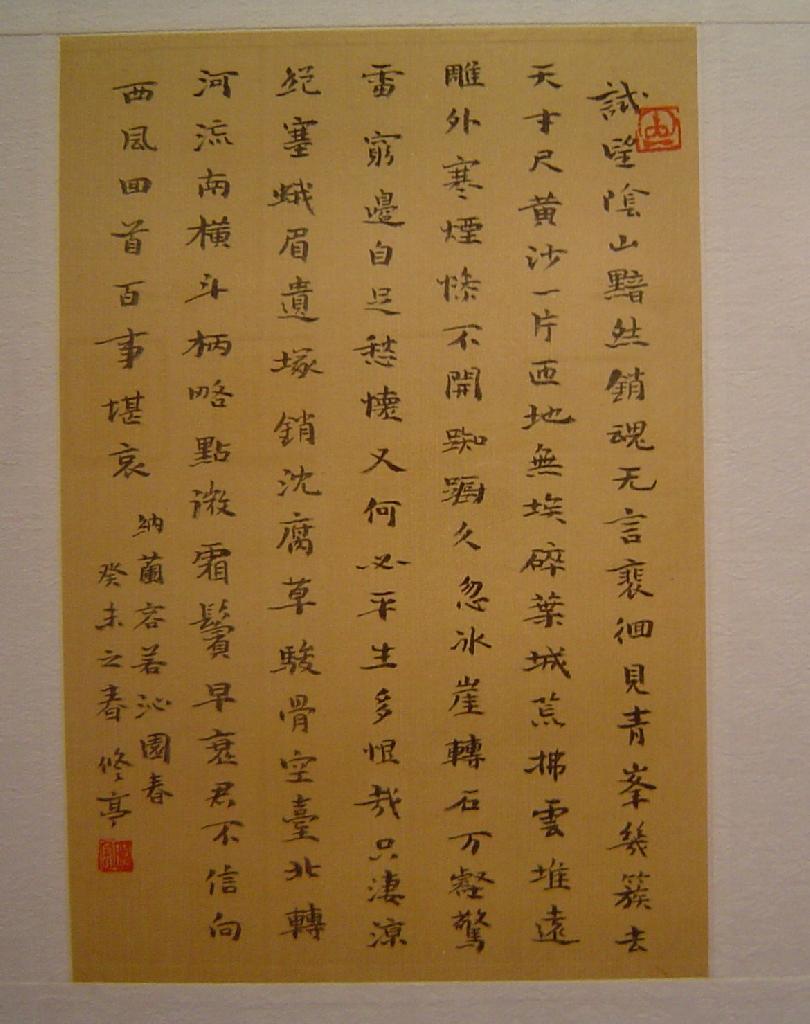 試望陰山黯然銷魂无言裵徊見青峯幾簇去
天才尺黄沙一片匝地無埃碎葉城荒拂雲堆遠
雕外寒煙慘不開踟躕久忽冰崖轉石万壑驚
雷窮邊自足愁懷又何必平生多恨哉只淒涼
絕塞蛾眉遺塚銷沈腐草駿骨空臺北轉
河流南横斗柄略點微霜鬢早衰君不信向
西風回首百事堪哀
納蘭容若沁園春
癸未之春 修亭